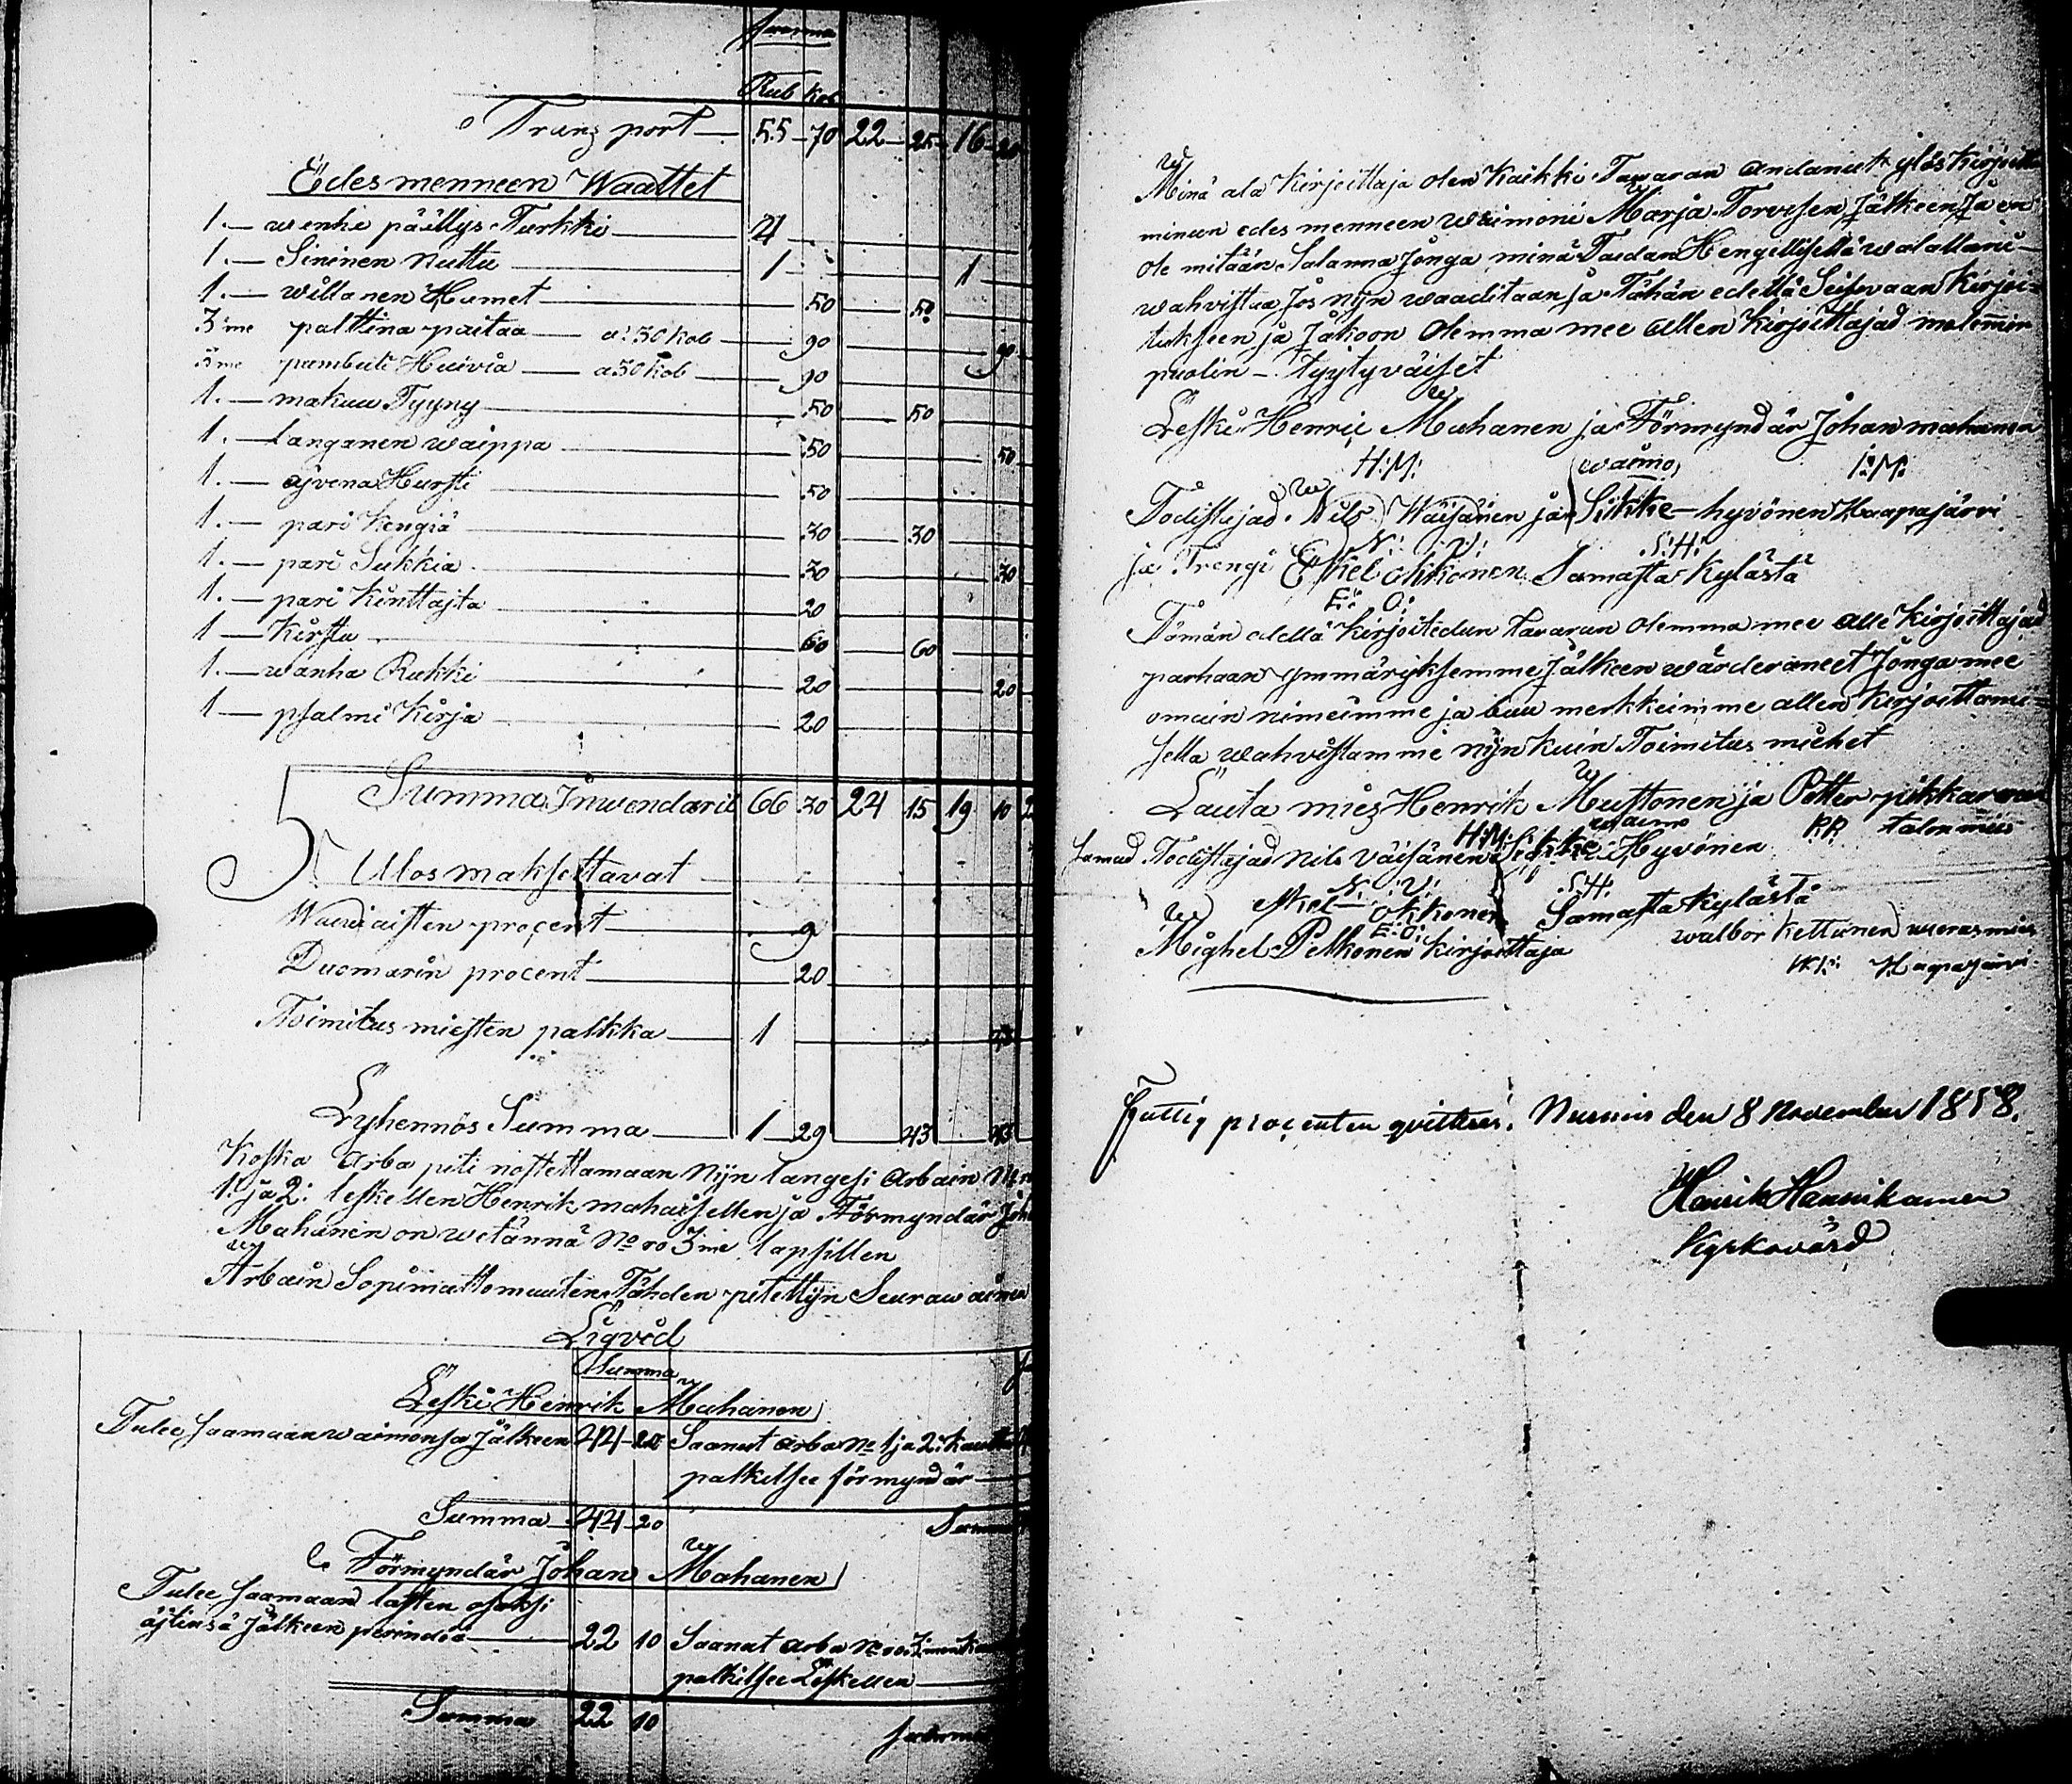 Summa
Rub Kob
Transport 55 70 22 25 16 20
Edesmenneen Waattet
1. wenhe päällys Turkki 4
1. Sininen Nuttu 1 1
1. willanen Hamet 50 50
3me palttina paitaa a 30 kob 90 90
3me pumbuli Huivia a 30 Kob 90
1. makuu Tyyny 50 50
1. langanen waippa 50 50
1. äjvenä Hursti 50
1. pari Kengiä 30 30
1. pari Sukkia 30 30
1. pari Kinttajta 20
1 Kirstu 60 60
1. wanha Rukki 20 20
1 psalmi Kirja 20
Summa Inwendarié 66 30 24 15 19 10 2
Ulos maksettavat
Waiwaisten procent 9
Duomarin procent 20
Toimitus miesten palkka 1 43
Lyhennös Summa 1 29 43 43
Koska Arba piti nostettamaan Nijn langesi Arbain N:r
1: ja 2: leskellen Henrik mahaisellen ja Förmyndär Joh
Mahanen on wetännä No ro 3me lapsillen
Arbain Sopimattomuuten Tähden pitettijn Seurawainen
Liqvid
Summa
Leski Henrik Mahanen
Tulee saamaan waimonsa Jälkeen 44 20 Saanut arba No 1 ja 2:
palkitsee förmyndär
Summa 44 20 Summa
Förmyndär Johan Mahanen
Tulee saamaan lasten osaksi
äjtinsä Jälkeen perindöä 22 10 Saanut arba No ro 3
palkitsee Leskellen
Summa 22 10 Summa
Minä ala Kirjoittaja olen Kaikki Tawaran andanut ylös Kirjoitta
minun edes menneen waimoni Marja Torvisen Jälkeen Ja en
ole mitään Salanna Jonga minä Taidan Hengellisellä walallani
wahvistaa Jos nijn waaditaan ja Tähän edellä Seisowaan Kirjoi=
tukseen ja Jakoon Olemma mee allen Kirjoittajad molemin
puolin Tyytyväiset
Leski Henric Mahanen ja Förmyndär Johan mahanen
H:M: waimo J:M:
Todistajad Nils Wäisänen ja Sikke hyvönen Haapajärvi
N: V: S:H:
ja Trengi Eskel okkonen Samasta Kylästä
E: O:
Tämän edellä Kirjoitedun tavaran olemma mee alle Kirjoittajad
parhaan ymmäryksemme Jälkeen wärderäneet Jonga mee
omain nimeimme ja buu merkkeimme allen Kirjoittami=
sella wahvistamme nijn kuin Toimitus miehet
Lauta mies Henrik Mustonen ja Petter pikkarainen
H:M: waimo P.P. talon mies
Samad Todistajad Nils Väisänen Sikke Hyvönen
N: V: S:H:
Eskel okkonen Samasta kylästä
E:O: walbor Kettunen wieras mies
Mighel Pelkonen Kirjoittaja
W:K: Haapajärvi
Fattig procenten qvitteras. Nurmis den 8 November 1858.
Henrik Hannikainen
Kyrkovärd